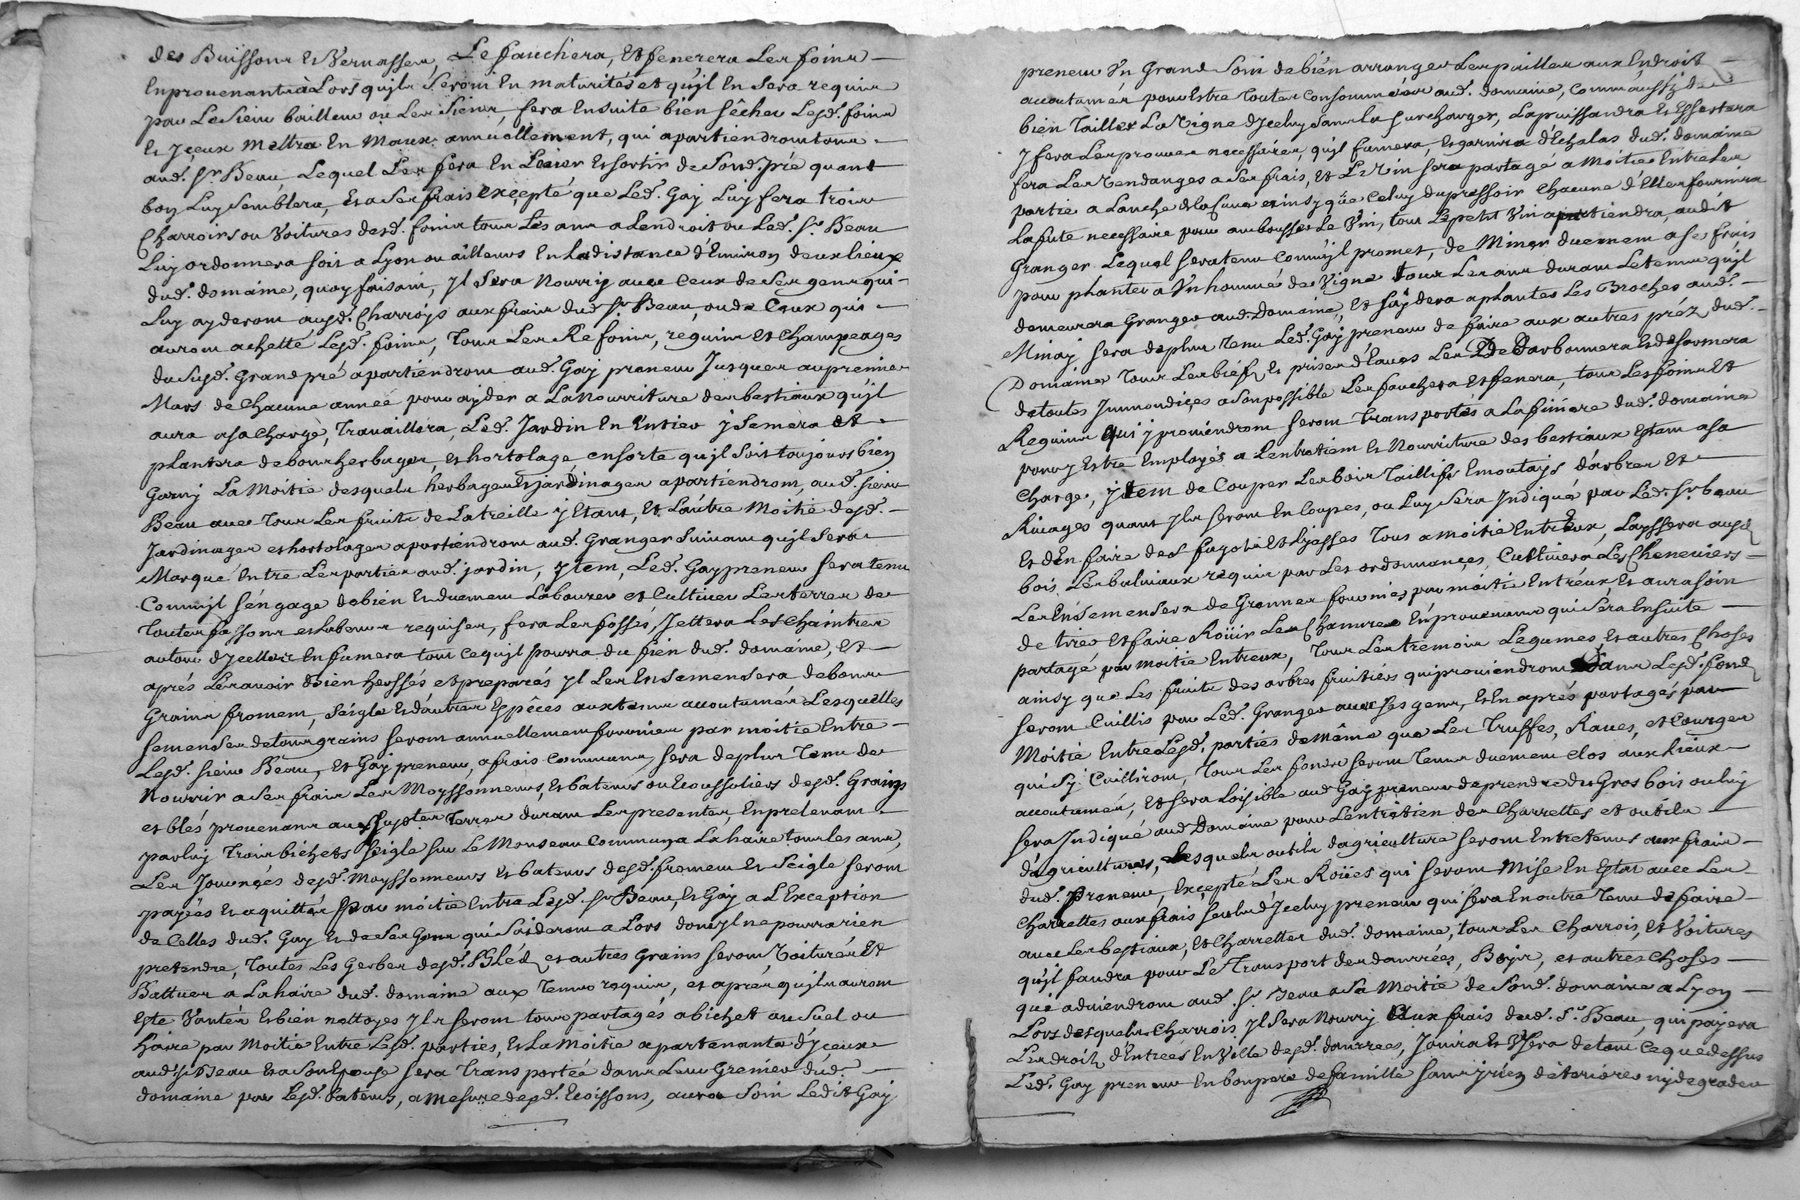 des Buissons et Vernasses, Le fauchera, Et fenerera Les foins
En provenants a Lors qu'ils Seront En maturités et qu'il En Sera requis
par Le Sieur bailleur ou Les Siens, fera Ensuite bien sêcher Lesd. foins
Et Yceux Mettra En Maux annuellement, qui apartiendront tous
aud. Sr. Beau Lequel Les fera En Lever Et sortir de Sond. pré quant
bon Luy Semblera, Et a Ses frais Excepté que Led. Gay Luy fera trois
Charroirs ou Voitures desd. foins tous Les ans a Lendroit ou Led. Sr. Beau
Luy ordonnera soit a Lyon ou ailleurs En La distance d'Environ deux lieux
dud. domaine, quoy faisant, Yl Sera Nourriy avec Ceux de Ses gens qui
Luy ayderont ausd. Charroys aux frais dud. Sr. Beau, ou de Ceux qui
auront achetté Lesd. foins, Tous Les Refoins, requins Et Champeages
du Susd. Grand pré apartiendront aud. Gay preneur Jusques au premier
Mars de Chacune année pour ayder a La Nourriture des bestiaux qu'il
aura a Sa Charge, Travaillera, Led. Jardin En Entier y Semera Et
plantera de bonnes herbages, et hortolage ensorte qu'jl Soit toujours bien
Garny La Moitié desquels herbages Et jardinages apartiendront, aud. Sieur
Beau avec Tous Les fruits de La treille y Etant, Et L'autre Moitié desd.
Jardinages et hortolages apartiendront aud. Granger Suivant qu'jl Sera
Marqué Entre Les parties aud. jardin, ytem, Led. Gay preneur Sera tenu
Comm'jl S'éngage de bien Et duement Labourer et Cultiver Les terres de
Toutes façons et Labeurs requises, fera Les fossés, Jettera Les Chaintres
autour d'ycelles En fumera tout Cequ'jl pourra du fien dud. domaine, Et
aprés Les avoir bien herssés et preparés Yl Les Ensemensera de bons
Grains froment, Seigle Et d'autres Espêces aux tems accoutumés Lesquelles
Semences de tous grains Seront annuellement fournies par moitié Entre
Lesd. Sieur Beau, Et Gay preneur, a frais Communs, Sera de plus Tenu de
Nourrir a Ses frais Les Moyssonneurs, Et bateurs ou Ecoussoliers desd. Grains
et blés provenans auxd. Terres durant Les presentes, En prelevant
par luy Trois bichets Seigle Sur Le Monseau Commun a La haire tous les ans,
Les Journées desd. Moyssonneurs Et bateurs desd. froment Et Seigle Seront
payées Et aquittés Par moitié Entre Lesd. Sr. Beau, Et Gay a L'Exception
de Celles dud. Gay Et de Ses Gens qui S'aideront a Lors dont yl ne pourra rien
pretendre, Toutes Les Gerbes desd. Bléd et autres Grains Seront, Voiturés Et
Battues a La haire dud. domaine aux Tems requis, et aprés qu'jls auront
Esté Vantés Et bien nettoyes Yls Seront tous partagés a bichet au Suel ou
haire par Moitié Entre Lesd. parties, Et La Moitié apartenante d'yceux
aud. Sr. Beau Et a Son Epouse Sera Transportée dans Leur Grenier dud.
domaine par Lesd. bateurs, a mesure desd. Ecoissons, aura Soin Led. Gay
preneur d'un Grand Soin de bien arranger Les pailles aux Endroit
accoutumés pour Estre Toutes Consommées aud. domaine, Comm'aussy de
bien Tailler La Vigne d'Jcelluy Sans La Surcharger,
y fera Les prouves necessaires, qu'jl fumera, Et garnira d'Echalas dud. domaine
fera Les Vendanges a Ses frais, Et Le Vin Sera partagé a Moitié Entre Les
parties a Lanche de la Cuve ainsy que Celuy du pressoir Chacune d'Elles fournira
La futte necessaire pour Le Vin, tout Le petit Vin apartiendra, audit
Granger Lequel Sera tenu Comm'jl promet, de Miner duement a Ses frais
pour planter a Un hommée de Vigne Tous Les ans durant Le tems qu'jl
demeurera Granger aud. Domaine, Et S'aydera a planter Les Broches aud.
Minay Sera de plus Tenu Led. Gay preneur de faire aux autres préz dud.
Domaine Tous Les biefs Et prises d'Eaux Les Et desharmera
de toutes Jmmondices a Son possible Les fauchera Et fenera, tous Les foins Et
Requins Qui y proviendront Seront Transportés a La finiére dud. domaine
pour y Estre Employés a L'entretient Et Nourriture des bestiaux Estant a Sa
Charge, ytem de Couper Les bois Taillifs Emoutajs d'arbres Et
Rivages quant Yls Seront En Coupes, ou Luy Sera Jndiqué par Led. Sr. beau
Et d'En faire des fagots Et Lyasses Tous a moitié Entr'Eux, Layssera ausd.
bois, Les baliviaux requis par Les ordonnances, Cultivera Les Cheneviers
Les Ensemensera de Grannes fournies par moitié Entr'eux, Et aura Soin
de tirer Et faire Roüir Les Chanvres En provenans qui Sera Ensuite
partagé par Moitié Entreux, Tous Les tremois Legumes Et autres Choses
ainsy que Les fruits des arbres fruitiers qui proviendront Dans Lesd. fonds
Seront Cuillis par Led. Granger avec Ses gens, Et En aprés partagés par
Moitié Entre Lesd. parties de même que Les Truffes, Raves, et Courges
qui S'y Cuilliront, Tous Les fonds Seront Tenus duement clos aux lieux
accoutumés, Et Sera Loisible aud. Gay preneur de prendre du Gros bois ou luy
Sera Jndiqué aud. Domaine pour L'entrétien des Charrettes et outils
d'agricultures, Lesquels outils d'agriculture Seront Entretenus aux frais
dud. Preneur, Excepté Les Roües qui Seront Mise En Etat avec Les
Charrettes aux frais Seul d'Jceluy preneur qui Sera En outre Tenu de faire
avec Les bestiaux, Et Charrettes dud. domaine, tous Les Charrois, Et Voitures
qu'jl faudra pour Le Transport des danrrées, Bois, et autres Choses
qui adviendront aud. Sr. Beau a Sa Moitié de Sond. domaine a Lyon
Lors desquels Charrois Yl Sera Nourry Aux frais dud. Sr. Beau, qui payera
Les droits d'Entrées En Ville desd. danrrées, Jouira Et Usera de tout Ce que dessus
Led. Gay preneur En bon pere de famille Sans y rien deteriorer ny degrader